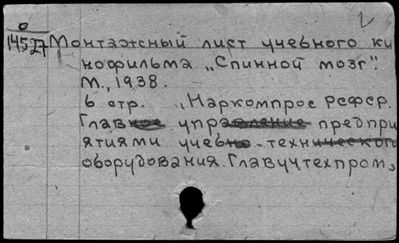 0
14527
Монтажный лист учебного ки
нофильма „Спинной мозг".
М., 1938.
6 стр. „Наркомпрос РСФСР.
Главное управление предпри
ятиями учебно-технического
оборудования. Главучтехпром„